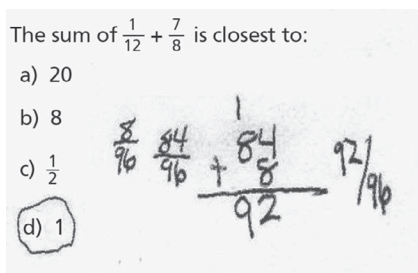 The sum of 1/12 + 7/8 is closest to:
a) 20
b) 8
c) 1/2
d) 1
8/96 84/96
1
84
+ 8
92
92/96